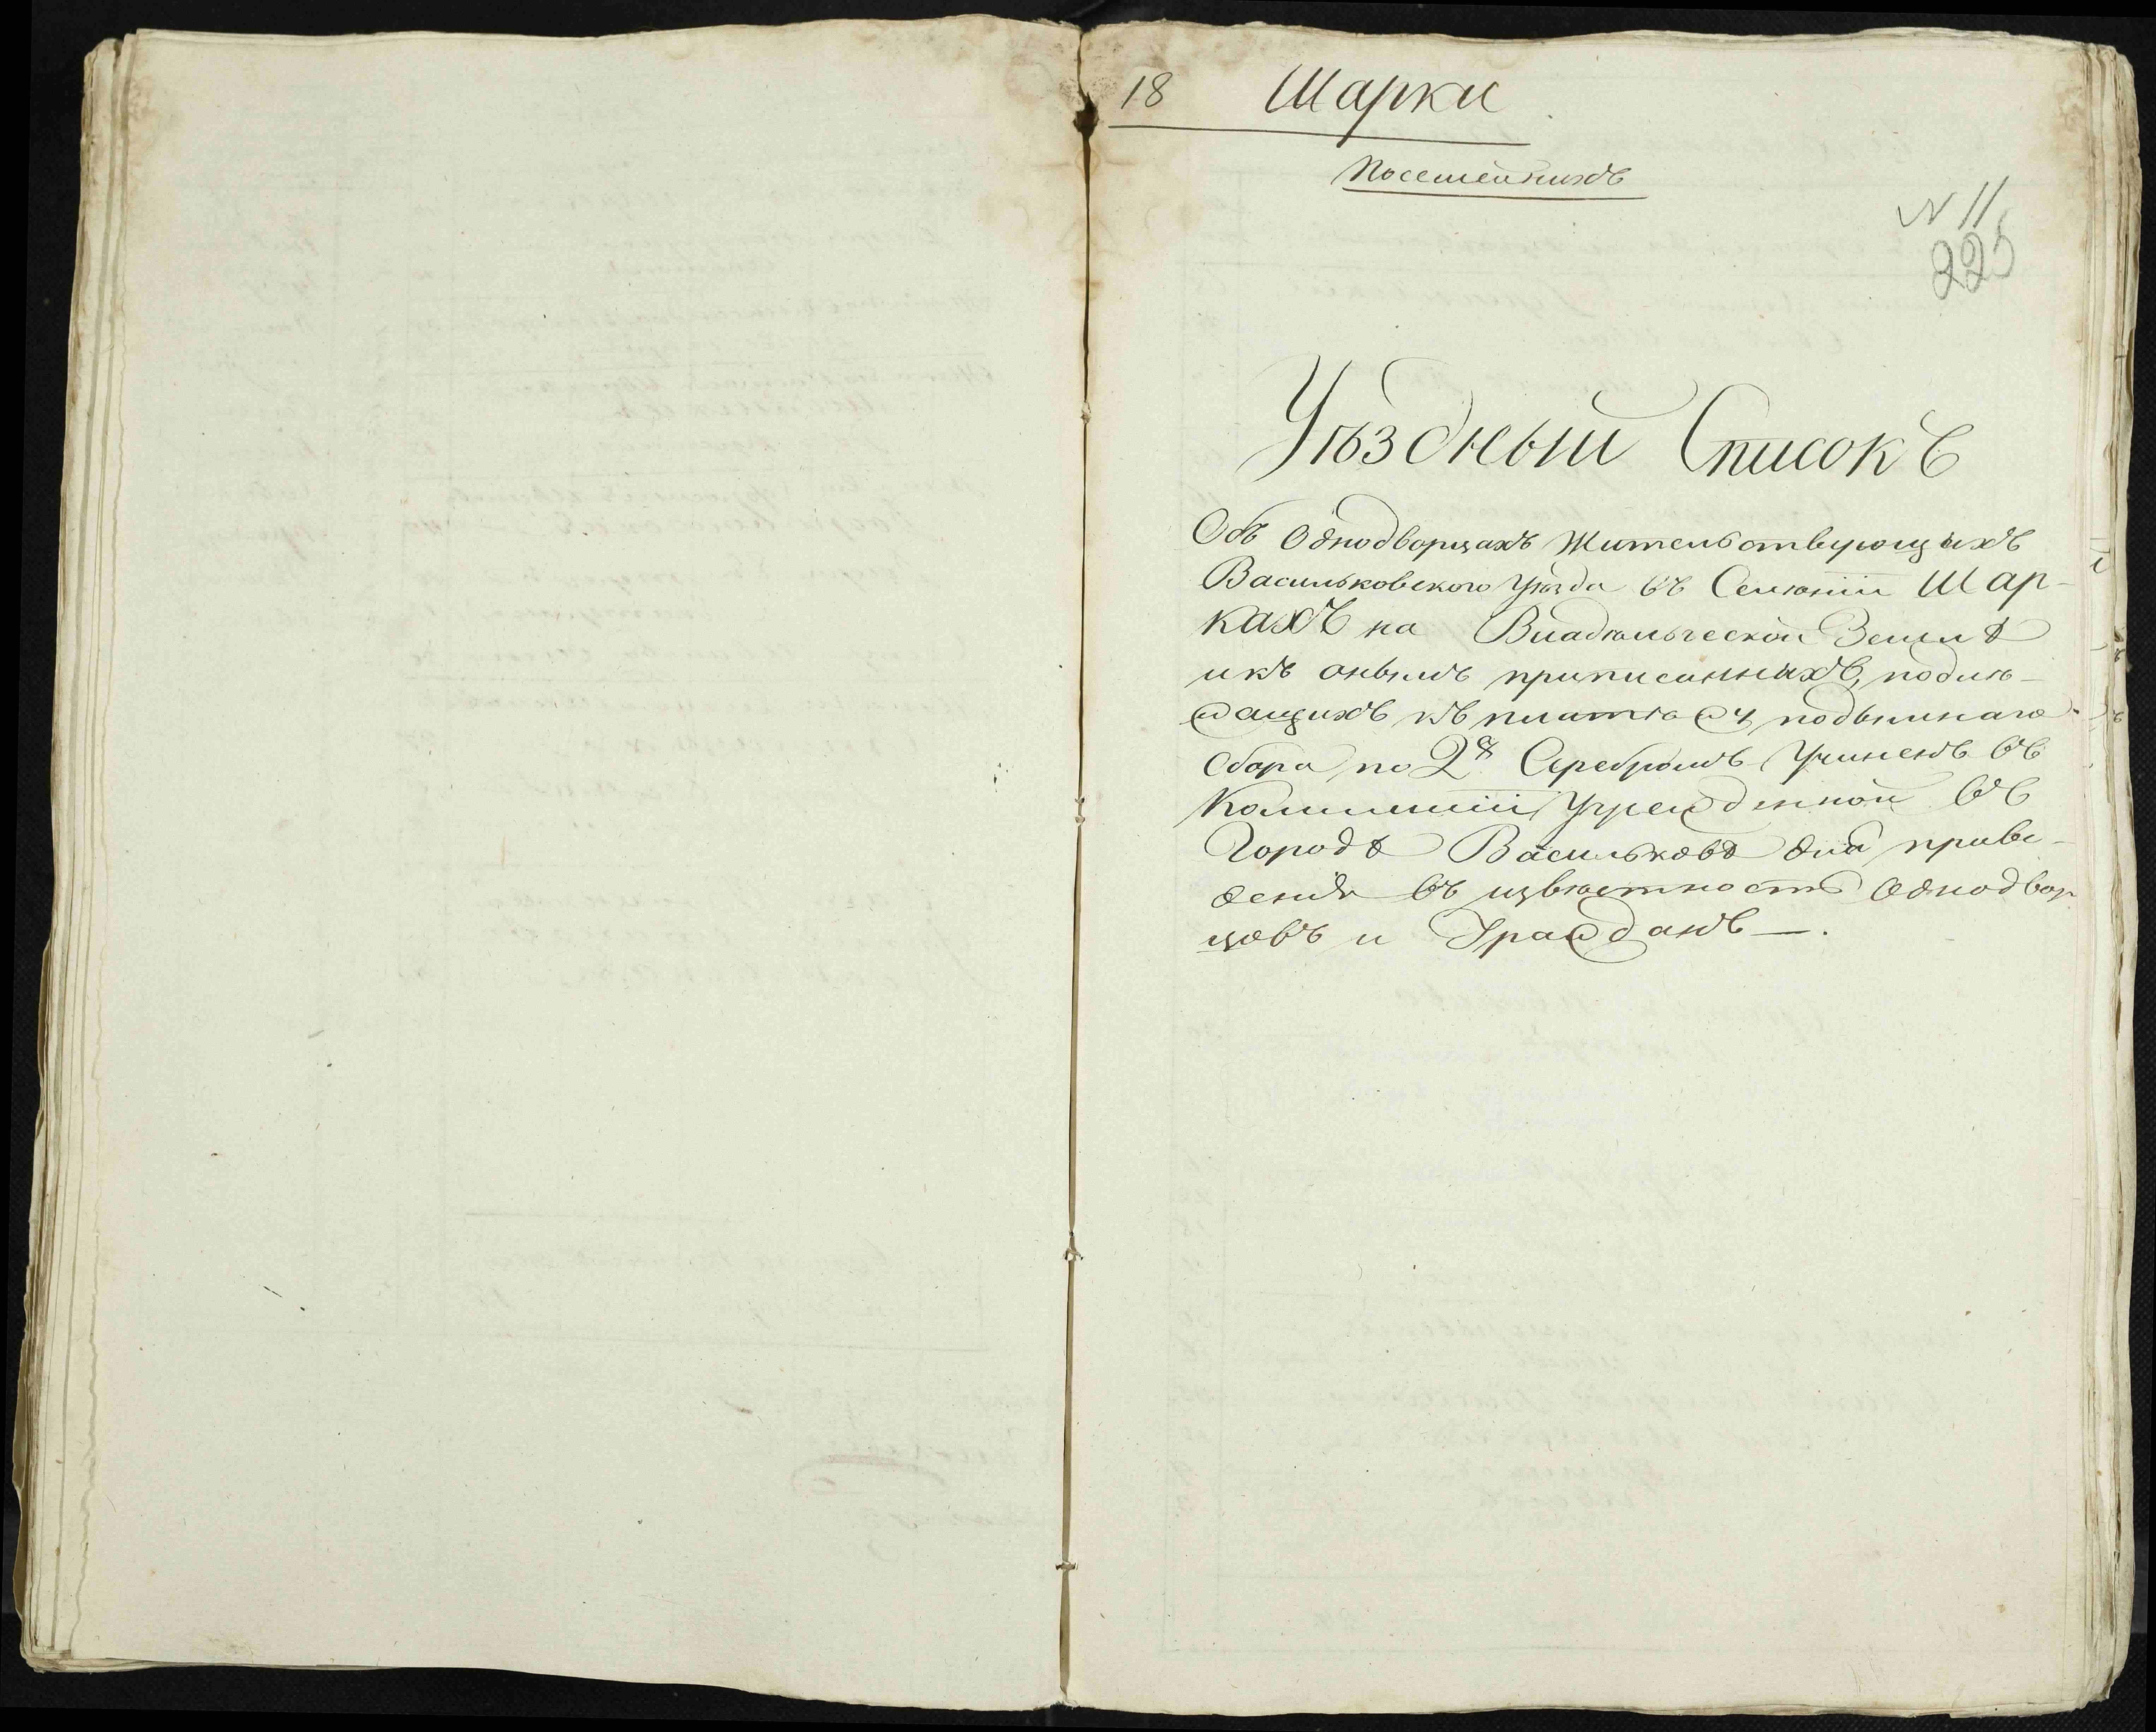 18 Шарки
Посемейныхъ
N 11
225
Уѣздный Списокъ
Объ Однодворцахъ Жительствующихъ
Васильковского Уѣзда въ Селѣнiи Шар-
кахъ на Владѣльческой Землѣ
и къ онымъ приписанныхъ, подлѣ-
жащихъ къ платѣжу подымнаго
сбора по 2 Серебромъ Учиненъ въ
Коммиссiи Учрежденной въ
Городѣ Васильковѣ для приве-
денiя въ извѣстность Однодвор
цовъ и Гражданъ —.